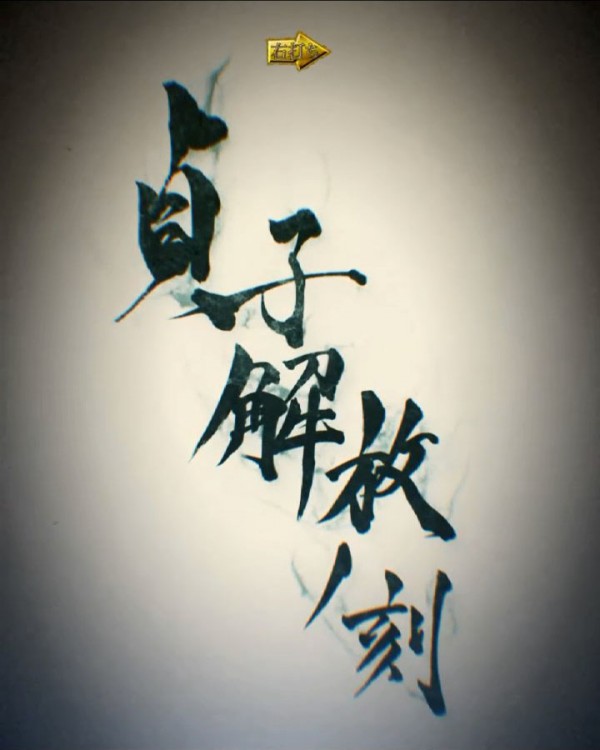 右打ち
貞子解放ノ刻